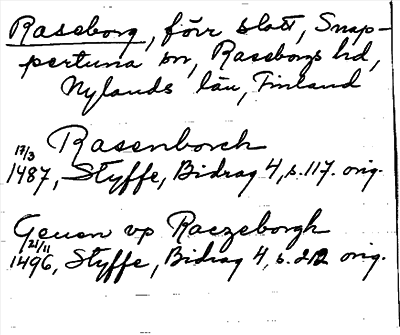 Raseborg, förr slott, Snap-
pertuna sn, Raseborgs hd,
Nylands län, Finland
Rasenborch
17/3
1487, Styffe, Bidrag 4, s. 117. orig.
Geuen vp Raczeborgh
21/11
1496, Styffe, Bidrag 4, s. 212 orig.